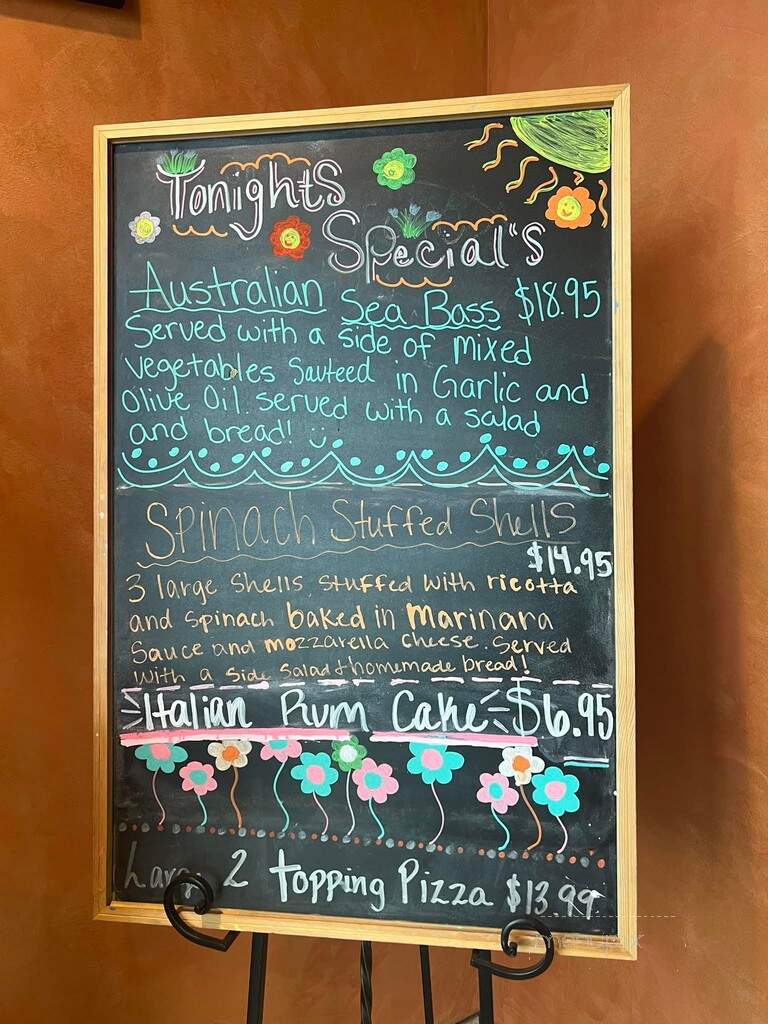 Tonights
Special"s
Australian Sea Bass $18.95
Served with a side of mixed
vegetables Sauteed in Garlic and
Olive Oil. served with a salad
and bread!
Spinach Stuffed Shells
$14.95
3 large Shells stuffed with ricotta
and spinach baked in Marinara
Sauce and mozzarella cheese. Served
with a side salad + homemade bread!
Italian Rum Cake $6.95
2 topping Pizza $13.99